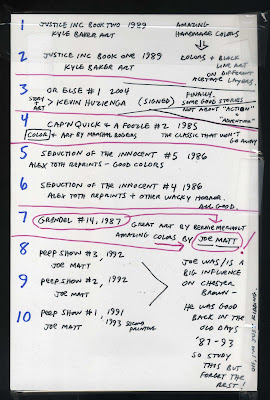 1 JUSTICE INC BOOK TWO 1989
KYLE BAKER ART
AMAZING
HANDMADE COLORS
2 JUSTICE INC BOOK ONE 1989
KYLE BAKER ART
COLORS & BLACK
LINE ART
ON DIFFERENT
ACETATE LAYERS.
3 OR ELSE #1 2004
STORY & ART > KEVIN HUIZENGA (SIGNED)
FINALLY,
SOME GOOD STORIES
NOT ABOUT "ACTION"
"ADVENTURE"
4 CAP'N QUICK & A FOOZLE #2 1985
COLOR & ART BY MARSHALL ROGERS
THE CLASSIC THAT WON'T
GO AWAY
5 SEDUCTION OF THE INNOCENT #5 1986
ALEX TOTH REPRINTS - GOOD COLORS
6 SEDUCTION OF THE INNOCENT #4 1986
ALEX TOTH REPRINTS + OTHER WACKY HORROR.
ALL GOOD
7 GRENDEL #14, 1987
GREAT ART BY BERNIE MIREAULT
AMAZING COLORS BY JOE MATT!
8 PEEP SHOW #3, 1992
JOE MATT
9 PEEP SHOW #2, 1992
JOE MATT
10 PEEP SHOW #1, 1991
JOE MATT 1993 SECOND PRINTING
JOE WAS/IS A
BIG INFLUENCE
ON CHESTER
BROWN -
HE WAS GOOD
BACK IN THE
OLD DAYS
'87-93
SO STUDY
THIS BUT
FORGET THE
REST!